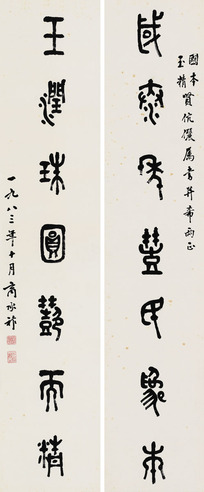 國本
玉精賢伉儷屬書并希兩正
國泰年豐民為本
玉潤珠圓藝而精
一九八三年十月商承祚